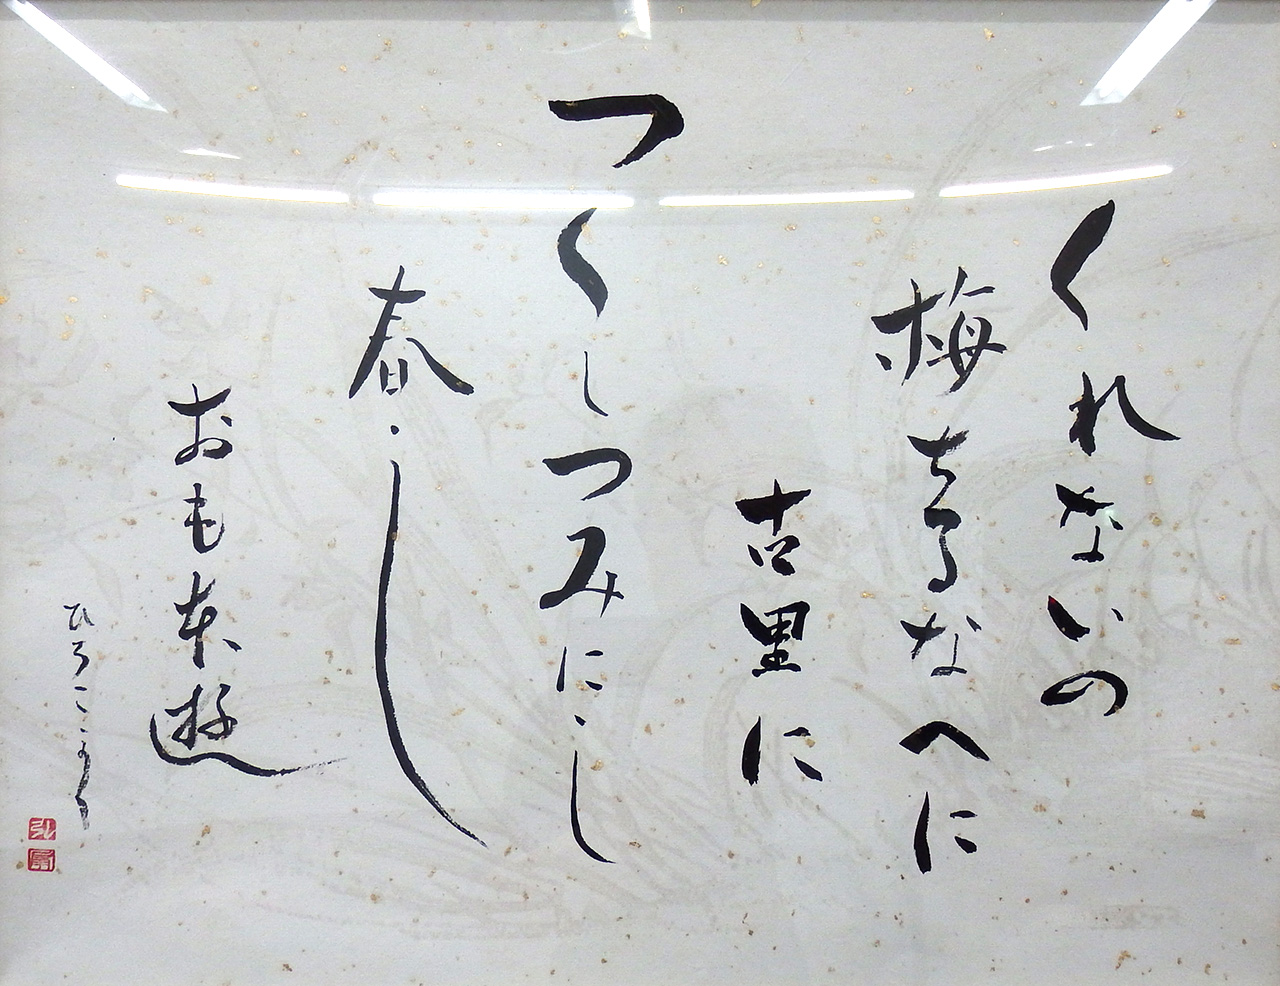 くれないの
梅ちるなへに
古里に
つくしつみにし
春し
おも本遊
ひろこかく